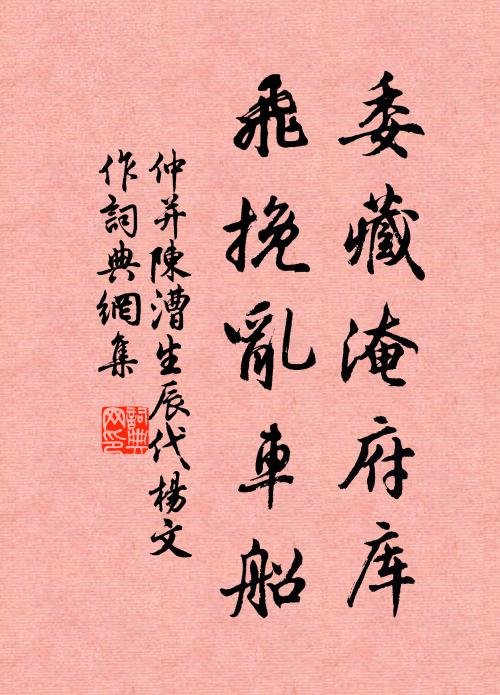 委藏淹府库
飛挽亂車船
仲并陳漕生辰代楊文
作詞典網集
詞典网印